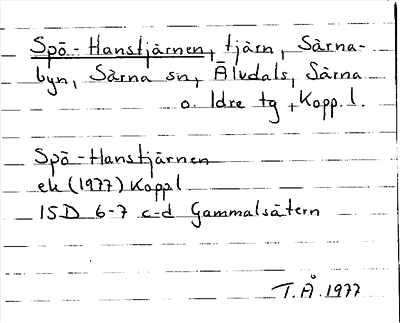 Spö-Hanstjärnen, tjärn, Särna-
byn, Särna sn, Älvdals, Särna
o. Idre tg, Kopp. l.
Spö-Hanstjärnen
ek (1977) Kopp l
15D 6-7 c-d Gammalsätern
T.Å. 1977